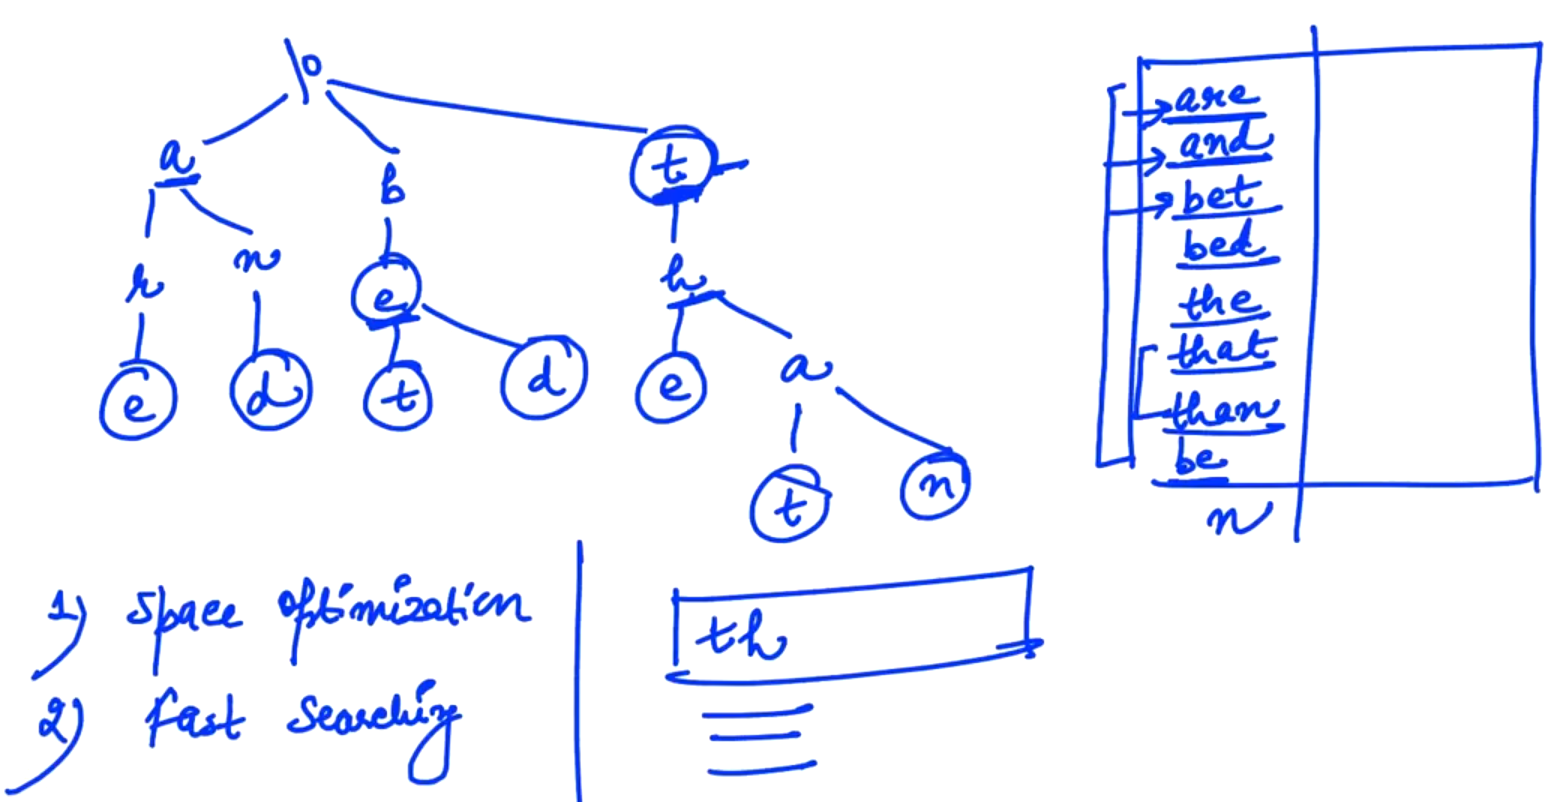 \0
a b t
r n e h
e d t d e a
t n
are
and
bet
bed
the
that
than
be
n
1) Space optimization
2) Fast Searching
th